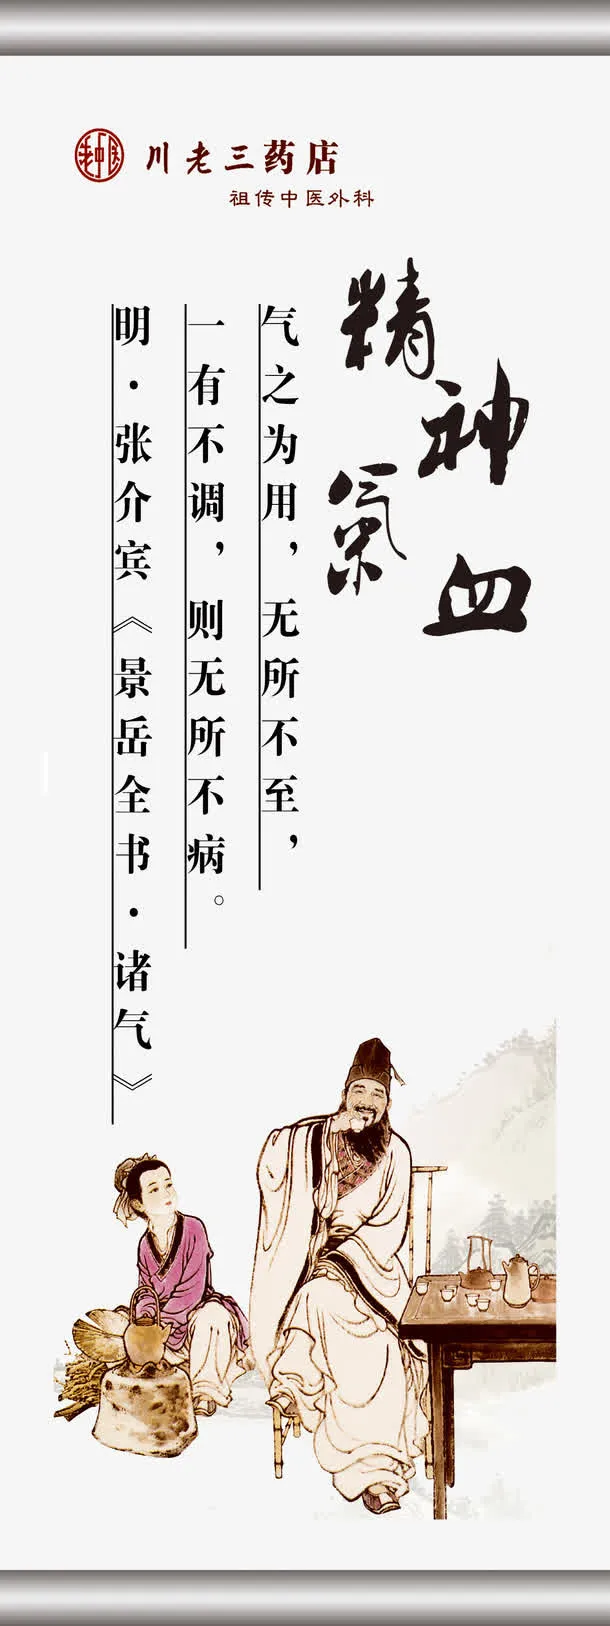 老中医
川老三药店
祖传中医外科
精神氣血
气之为用，无所不至，
一有不调，则无所不病。
明·张介宾《景岳全书·诸气》